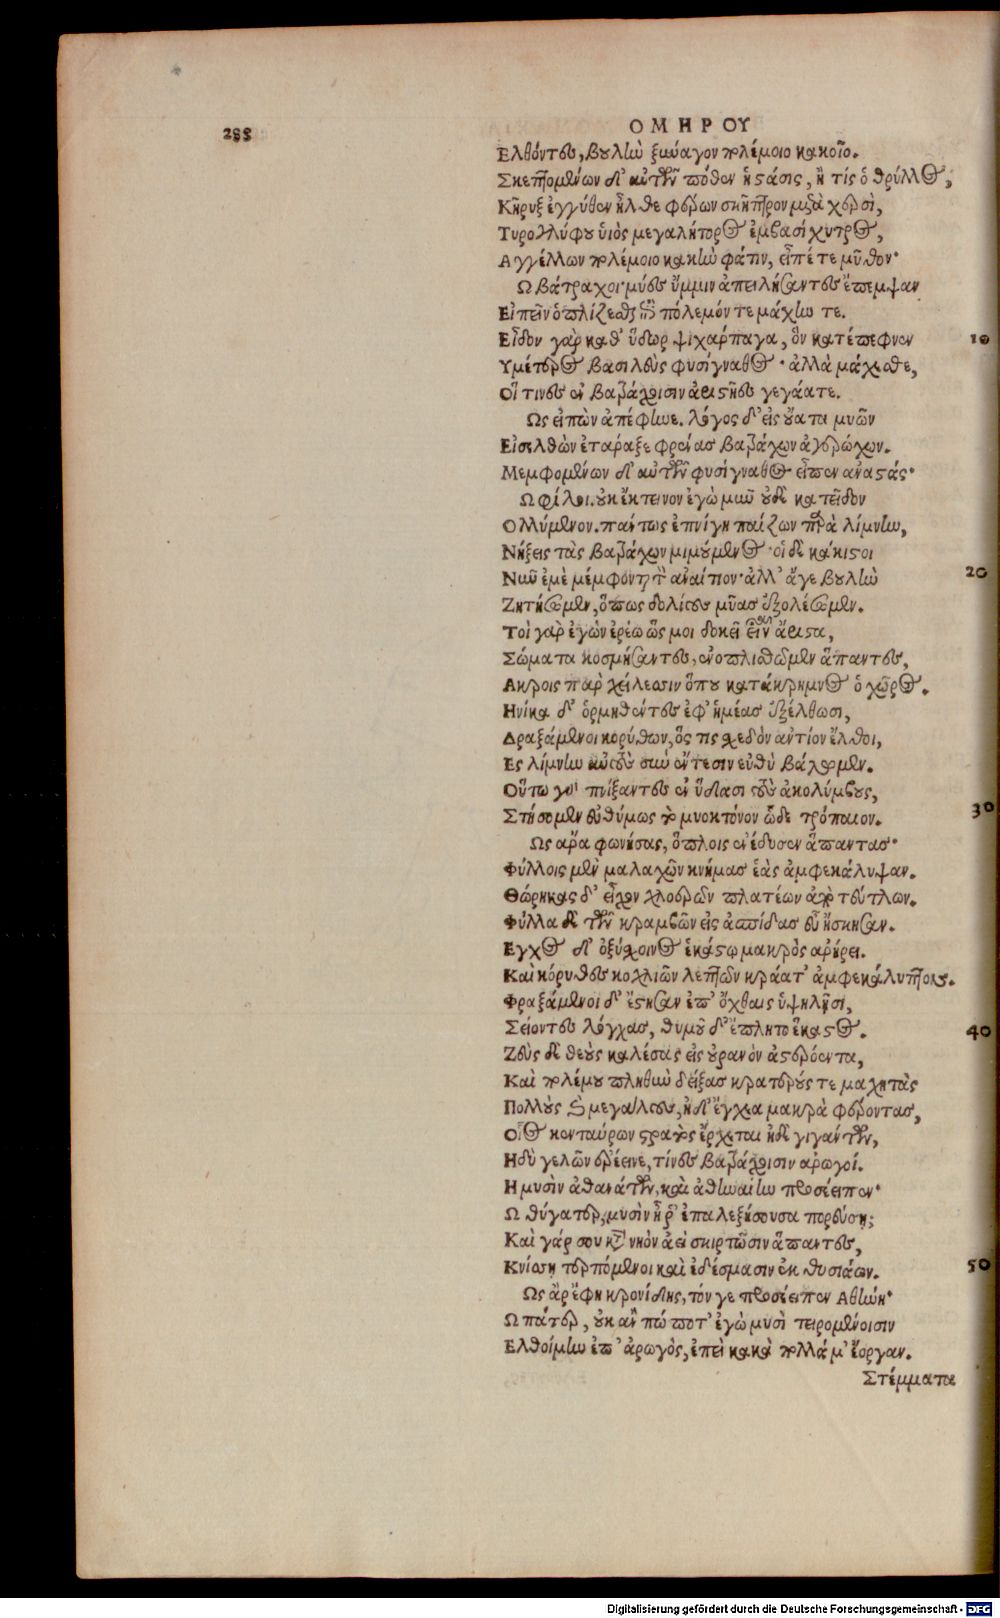 288
ΟΜΗΡΟΥ
Ελθόντες, βουλὴν ξυνάγον πολέμοιο κακοῖο.
Σκεπτομένων δ' αὐτῶν πόθεν ἡ στάσις, ἢ τίς ὁ θρύλλος,
Κῆρυξ ἐγγύθεν ἦλθε φέρων σκῆπτρον μετὰ χερσὶ,
Τυρογλύφου ὑιὸς μεγαλήτορος ἐμβασίχυτρος,
Αγγέλλων πολέμοιο κακὴν φάτιν, εἶπέ τε μῦθον·
Ω βάτραχοι· μύες ὔμμιν ἀπειλήσαντες ἔπεμψαν
Εἰπεῖν ὁπλίζεσθαι ἐπὶ πόλεμόν τε μάχην τε.
Εἶδον γὰρ καθ' ὕδωρ ψιχάρπαγα, ὃν κατέπεφνεν
10
Υμέτερος βασιλεὺς φυσίγναθος· ἀλλὰ μάχεσθε,
Οἵ τινες ἐν βατράχοισιν ἀριστῆες γεγάατε.
Ως εἰπὼν ἀπέφηνε. λόγος δ' εἰς οὔατα μυῶν
Εἰσελθὼν ἐτάραξε φρένας βατράχων ἀγερώχων.
Μεμφομένων δ' αὐτῶν φυσίγναθος εἶπεν ἀναστάς·
Ω φίλοι. οὐκ ἔκτεινον ἐγὼ μῦν οὐδὲ κατεῖδον
Ολλύμενον. πάντως ἐπνίγη παίζων παρὰ λίμνην,
Νήξεις τὰς βατράχων μιμούμενος· οἱ δὲ κάκιστοι
Νῦν ἐμὲ μέμφονται τὸν ἀναίτιον· ἀλλ' ἄγε βουλὴν
20
Ζητήσωμεν, ὅπως δολίους μῦας ἐξολέσωμεν.
Τοὶ γὰρ ἐγὼν ἐρέω ὥς μοι δοκεῖ εἶναι ἄριστα,
Σώματα κοσμήσαντες, ἐνοπλισθῶμεν ἅπαντες,
Ακροις παρ χείλεσσιν ὅπου κατάκρημνος ὁ χῶρος.
Ηνίκα δ' ὁρμηθέντες ἐφ' ἡμέας ἐξέλθωσι,
Δραξάμενοι κορύθων, ὅς τις σχεδὸν ἀντίον ἔλθοι,
Ες λίμνην αὐτοὺς σὺν ἔντεσιν εὐθὺ βάλωμεν.
Οὕτω γὰρ πνίξαντες ἐν ὕδασι τοὺς ἀκολύμβους,
Στήσομεν εὐθύμως τὸ μυοκτόνον ὧδε τρόπαιον.
30
Ως ἄρα φωνήσας, ὅπλοις ἐνέδυσεν ἅπαντας·
Φύλλοις μὲν μαλαχῶν κνήμας ἑὰς ἀμφεκάλυψαν.
Θώρηκας δ' εἶχον χλοερῶν πλατέων ἀπὸ τεύτλων.
Φύλλα δὲ τῶν κραμβῶν εἰς ἀσπίδας εὖ ἤσκησαν.
Εγχος δ' ὀξύσχοινος ἑκάστῳ μακρὸς ἀρήρει.
Καὶ κόρυθες κοχλιῶν λεπτῶν κράατ' ἀμφεκάλυπτον.
Φραξάμενοι δ' ἔστησαν ἐπ' ὄχθαις ὑψηλῇσι,
Σείοντες λόγχας, θυμοῦ δ' ἔπλητο ἕκαστος.
40
Ζεὺς δὲ θεοὺς καλέσας εἰς οὐρανὸν ἀστερόεντα,
Καὶ πολέμου πληθὺν δείξας κρατερούς τε μαχητὰς
Πολλοὺς καὶ μεγάλους, ἠδ' ἔγχεα μακρὰ φέροντας,
Οἷος κενταύρων στρατὸς ἔρχεται ἠδὲ γιγάντων,
Ηδὺ γελῶν ἐρέεινε, τίνες βατράχοισιν ἀρωγοί.
Η μυσὶν ἀθανάτων, καὶ ἀθηναίην προσέειπεν·
Ω θύγατερ, μυσὶν ἦρ' ἐπαλεξήσουσα πορεύσῃ;
Καὶ γάρ σου κατὰ νηὸν ἀεὶ σκιρτῶσιν ἅπαντες,
Κνίσσῃ τερπόμενοι καὶ ἐδέσμασιν ἐκ θυσιάων.
50
Ως ἂρ ἔφη κρονίδης, τόν γε προσέειπεν Αθήνη·
Ω πάτερ, οὐκ ἂν πώποτ' ἐγὼ μυσὶ τειρομένοισιν
Ελθοίμην ἐπ' ἀρωγὸς, ἐπεὶ κακὰ πολλά μ' ἔοργαν.
Στέμματα
Digitalisierung gefördert durch die Deutsche Forschungsgemeinschaft - DFG